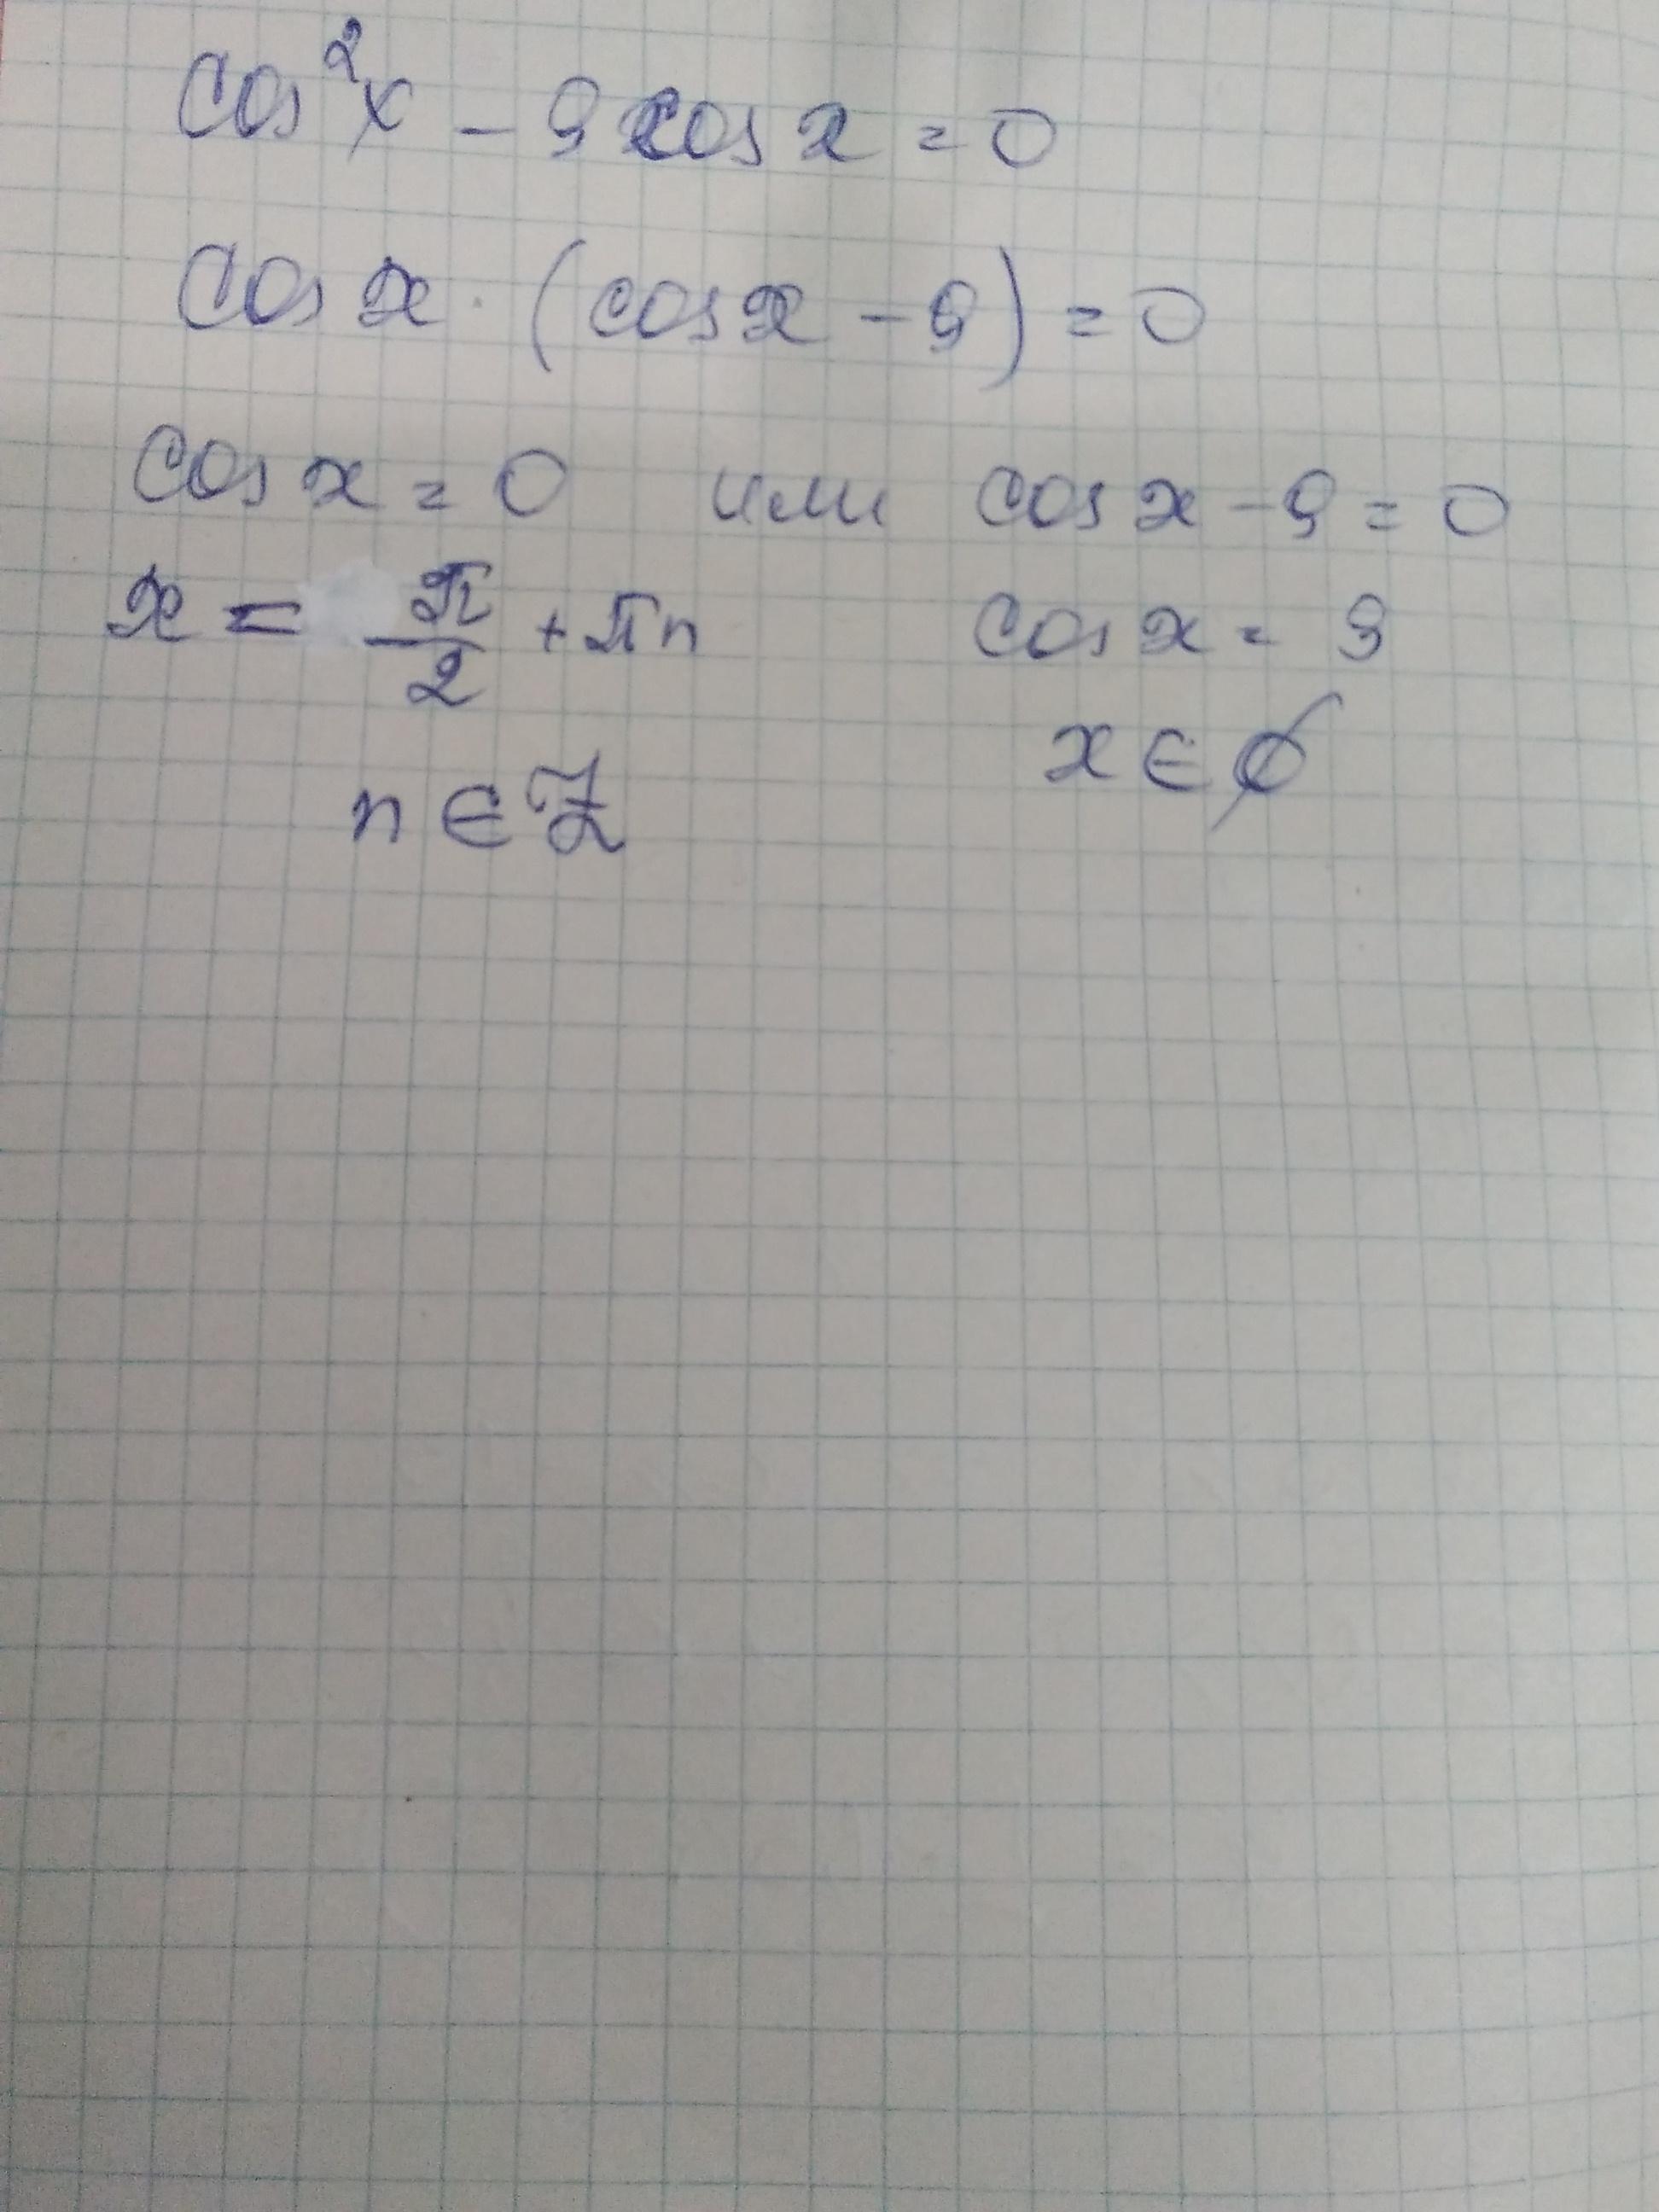 cos²x - 9 cos x = 0
cos x · (cos x - 9) = 0
cos x = 0 или cos x - 9 = 0
x = π/2 + πn cos x = 9
n ∈ Z x ∈ ∅